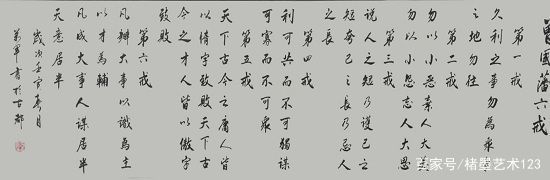 曾國藩六戒
第一戒
久利之事勿為衆爭
之地勿往
第二戒
勿以小惡棄人大美
勿以小怨忘人大恩
第三戒
說人之短乃護己之
短夸己之長乃忌人
之長
第四戒
利可共而不可獨謀
可寡而不可衆
第五戒
天下古今之庸人皆
以惰字致敗天下古
今之才人皆以傲字
致敗
第六戒
凡辦大事以識為主
以才為輔
凡成大事人謀居半
天意居半
歲次壬寅春月
軍書於古
百家号/楮墨艺术123